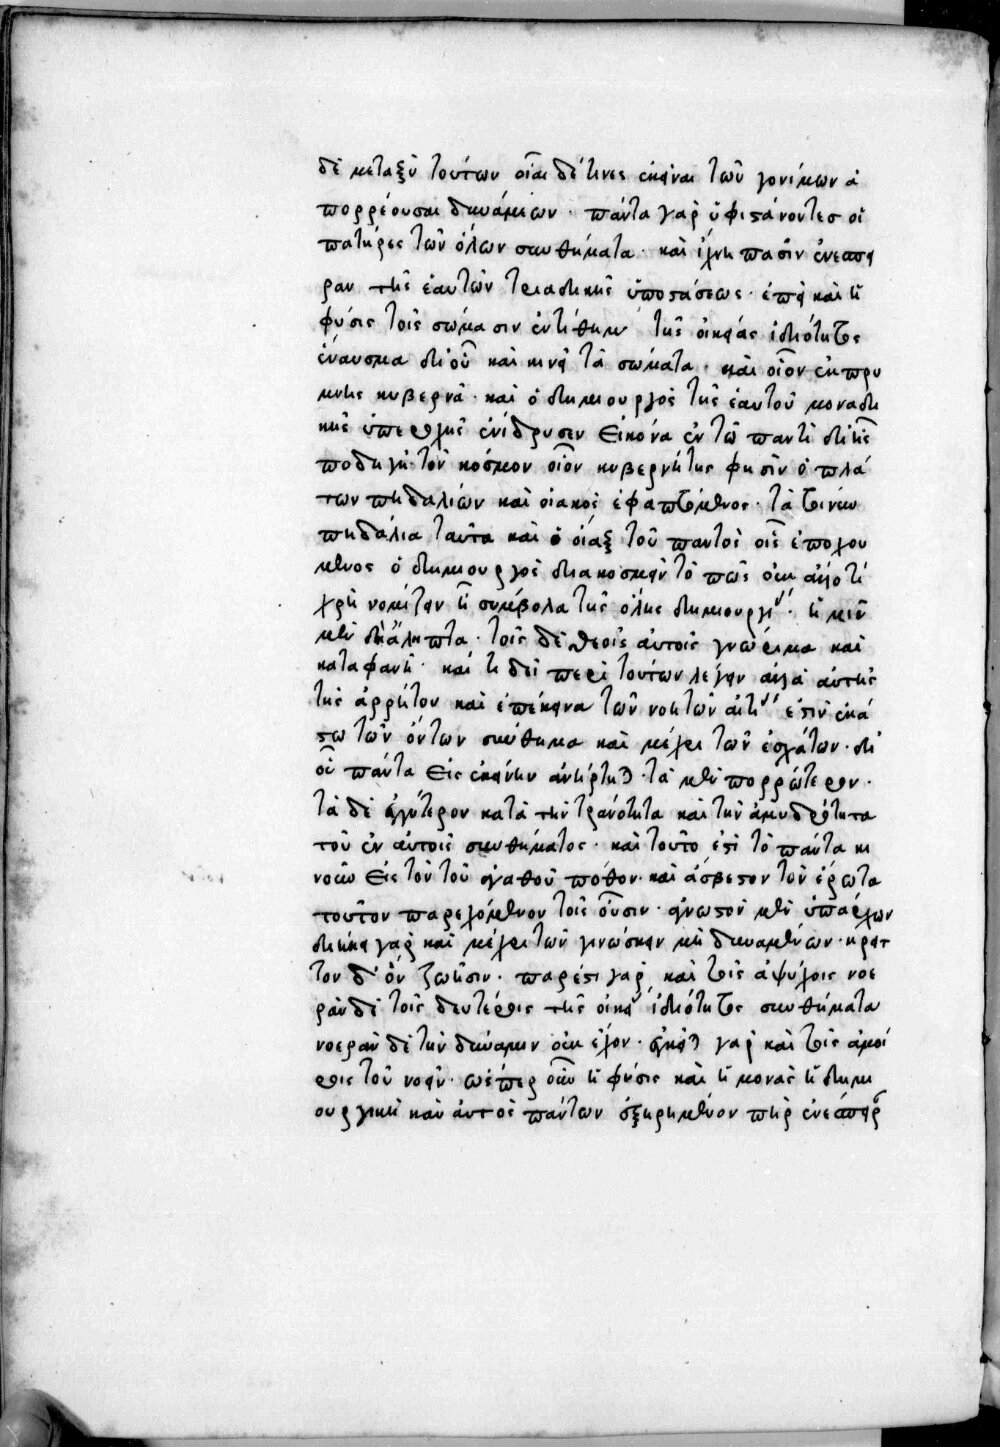 δὲ μεταξὺ τούτων οἷαι δέ τινες ἐκεῖναι τῶν γονίμων ἀ
πορρέουσαι δυνάμεων· πάντα γὰρ ὑφιστάνοντες οἱ
πατέρες τῶν ὅλων συνθήματα· καὶ ἴχνη πᾶσιν ἐνέσπει
ραν τῆς ἑαυτῶν τριαδικῆς ὑποστάσεως· ἐπεὶ καὶ ἡ
φύσις τοῖς σώμασιν ἐντίθησι τῆς οἰκείας ἰδιότητος
ἔναυσμα δι' οὗ καὶ κινεῖ τὰ σώματα· καὶ οἷον ἐκ πρύ
μνης κυβερνᾷ· καὶ ὁ δημιουργὸς τῆς ἑαυτοῦ μοναδι
κῆς ὑπεροχῆς ἐνίδρυσεν εἰκόνα ἐν τῷ παντὶ δι' ἧς
ποδηγεῖ τὸν κόσμον οἷον κυβερνήτης φησὶν ὁ πλά
των πηδαλίων καὶ οἴακος ἐφαπτόμενος· τὰ τοίνυν
πηδάλια ταῦτα καὶ ὁ οἴαξ τοῦ παντὸς οἷς ἐποχού
μενος ὁ δημιουργὸς διακοσμεῖ τὸ πᾶν οὐκ ἄλλο τί
χρὴ νομίζειν ἢ σύμβολα τῆς ὅλης δημιουργίας· ἡμῖν
μὲν δύσληπτα· τοῖς δὲ θεοῖς αὐτοῖς γνώριμα καὶ
καταφανῆ· καὶ τί δεῖ περὶ τούτων λέγειν ἀλλὰ αὐτῆς
τῆς ἀρρήτου καὶ ἐπέκεινα τῶν νοητῶν αἰτίας ἐστὶν ἑκά
στῳ τῶν ὄντων σύνθημα καὶ μέχρι τῶν ἐσχάτων· δι'
οὗ πάντα εἰς ἐκείνην ἀνήρτηται· τὰ μὲν πορρώτερον·
τὰ δὲ ἐγγύτερον κατὰ τὴν τρανότητα καὶ τὴν ἀμυδρότητα
τοῦ ἐν αὐτοῖς συνθήματος· καὶ τοῦτο ἐστὶ τὸ πάντα κι
νοῦν εἰς τὸν τοῦ ἀγαθοῦ πόθον· καὶ ἄσβεστον τὸν ἔρωτα
τοῦτον παρεχόμενον τοῖς οὖσιν· ἄγνωστον μὲν ὑπάρχον
διήκει γὰρ καὶ μέχρι τῶν γινώσκειν μὴ δυναμένων· κρεῖτ
τον δ' ὂν ζωῆς· πάρεστι γὰρ καὶ τοῖς ἀψύχοις νοε
ρὰν δὲ τοῖς δευτέροις τῆς οἰκείας ἰδιότητος συνθήματα
νοερὰν δὲ τὴν δύναμιν οὐκ ἔχον· ἔγκειται γὰρ καὶ τοῖς ἀμοί
ροις τοῦ νοεῖν· ὥσπερ οὖν ἡ φύσις καὶ ἡ μονὰς ἡ δημι
ουργικὴ καὶ αὐτὸς πάντων ἐξῃρημένος πατὴρ ἐνέσπειρε